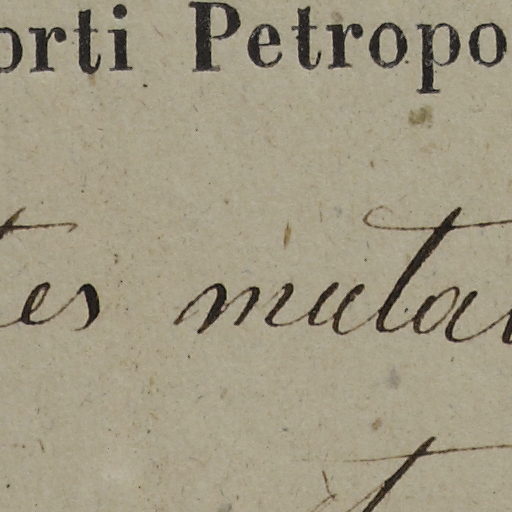 orti Petropo
tes mutat